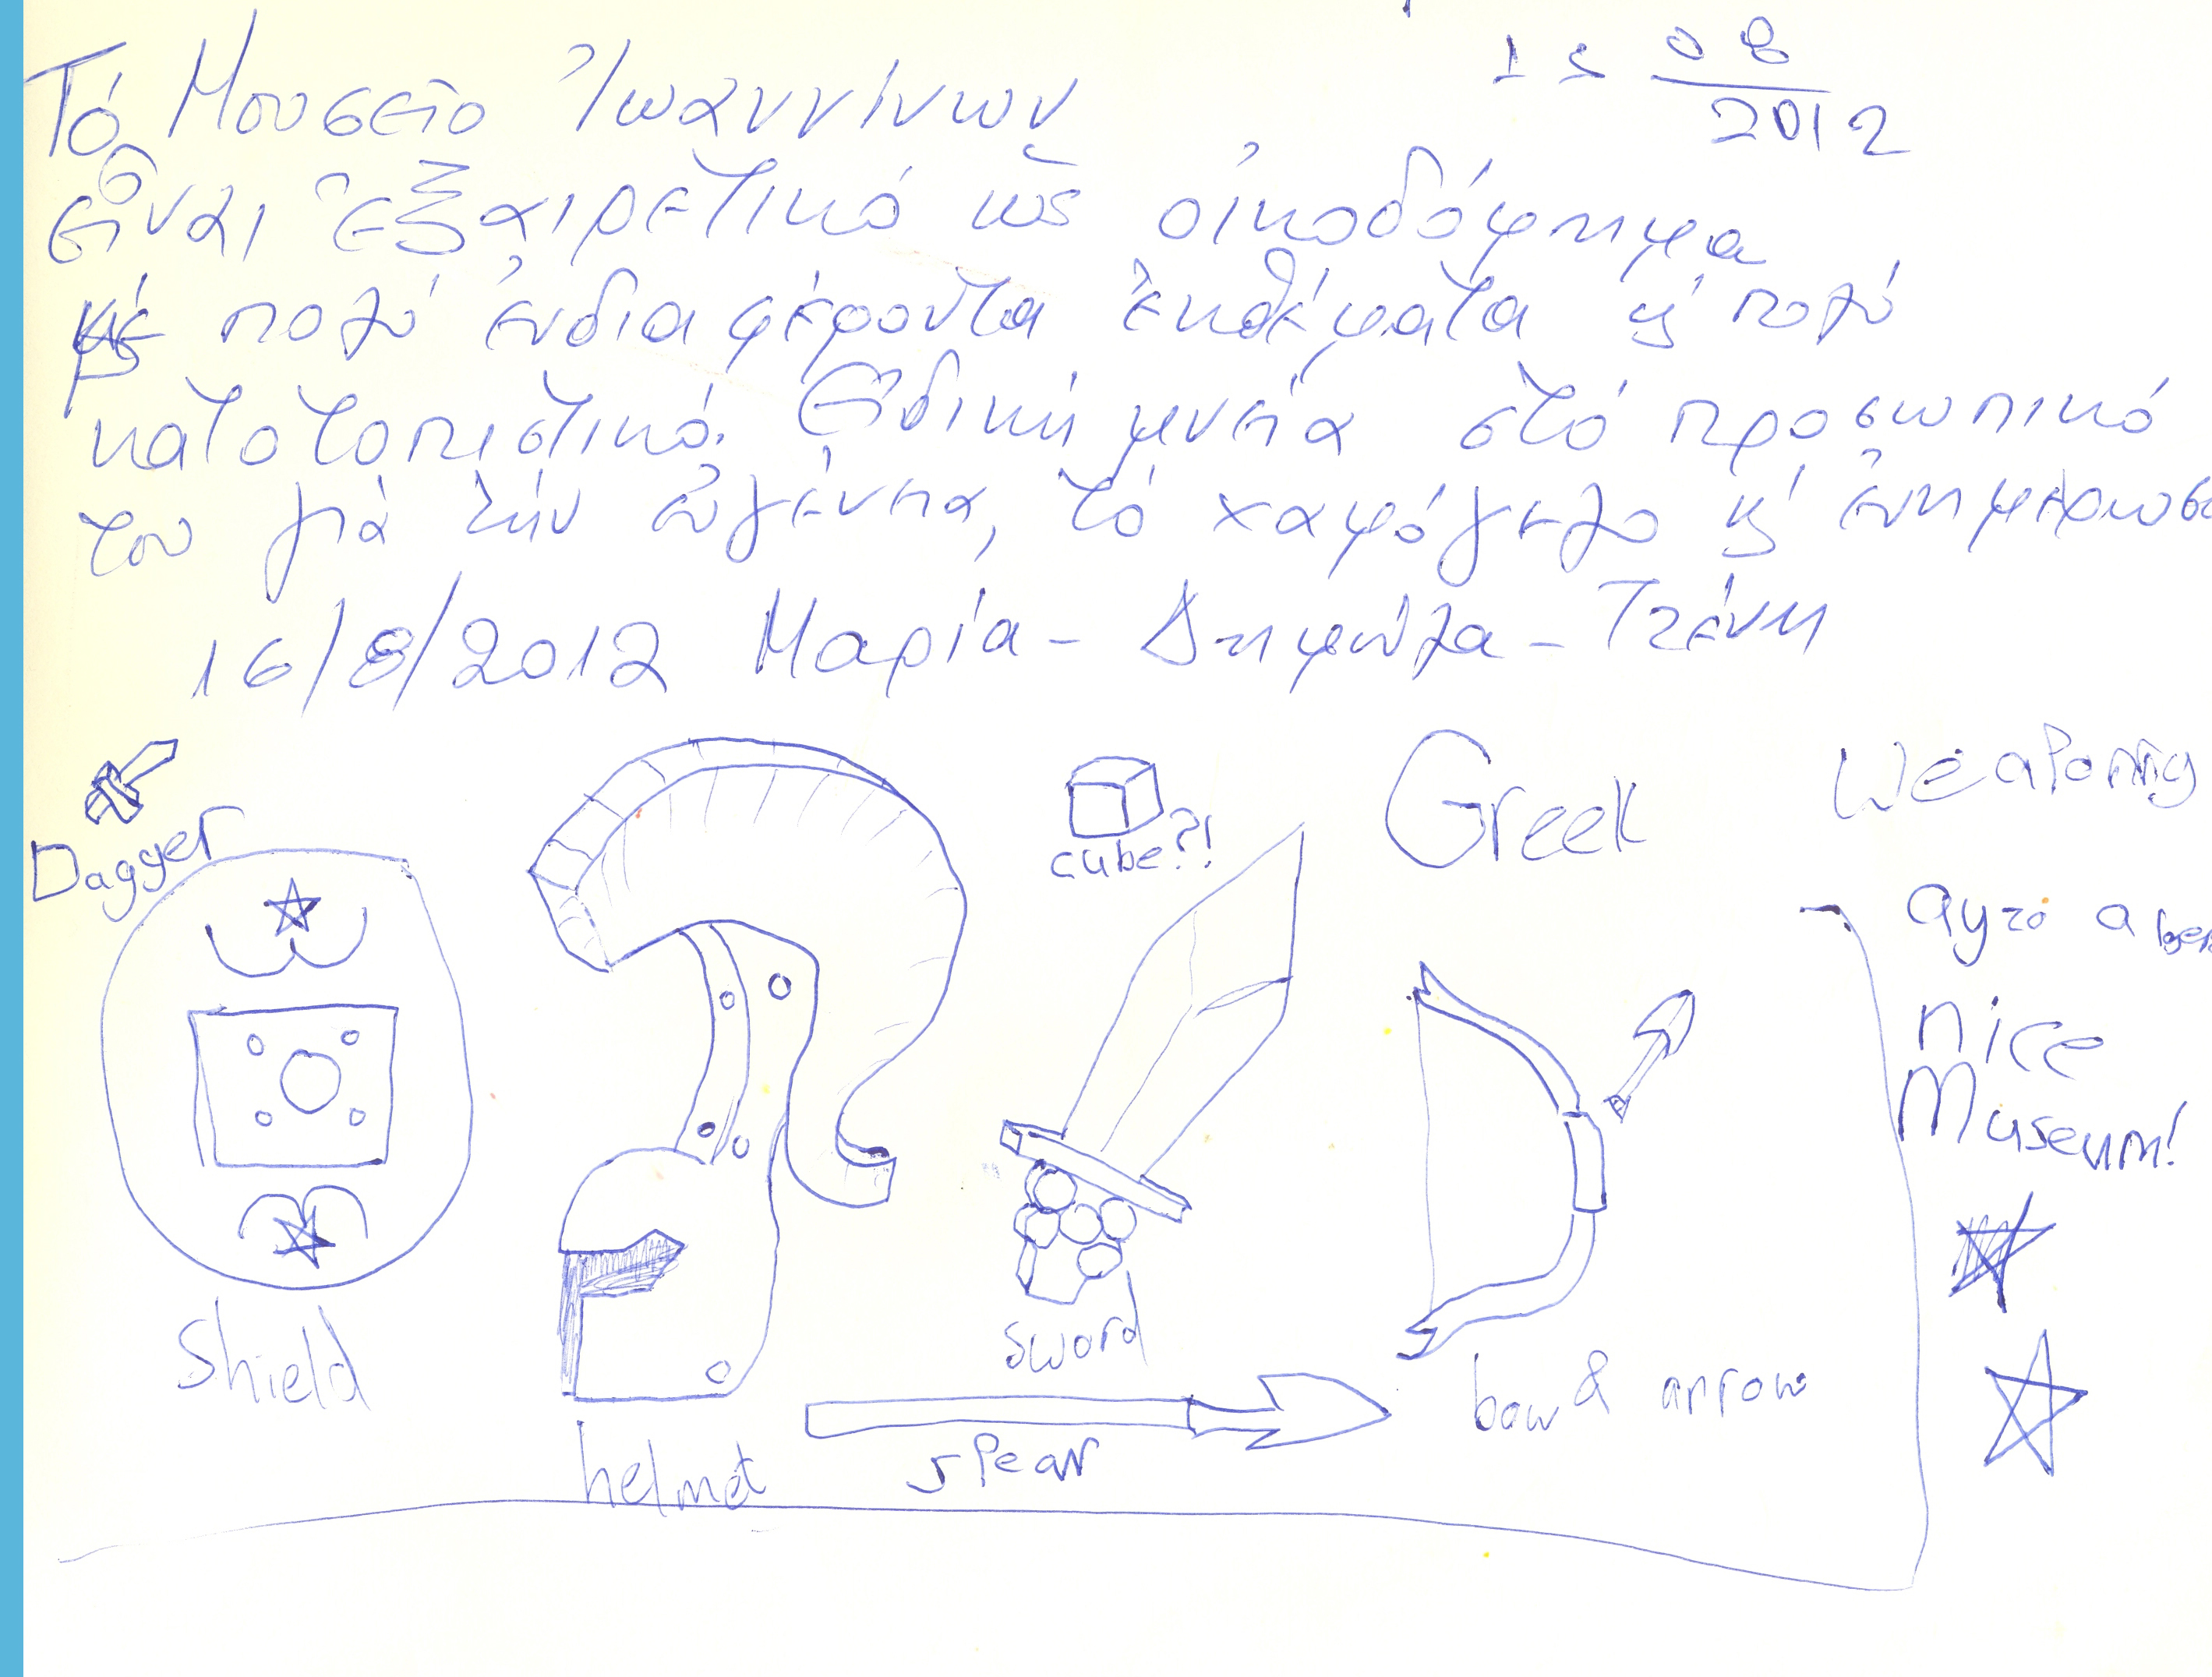 Τό Μουσεῖο Ἰωαννίνων
εἶναι ἐξαιρετικό ὡς οἰκοδόμημα
μέ πολύ ἐνδιαφέροντα ἐκθέματα κ' πολύ
κατατοπιστικά. Εἰδική μνεία στό προσωπικό
του γιά τήν εὐγένεια, τό χαμόγελο κ'
16/8/2012 Μαρία - Δημούλα - Τζένη
08
2012
Dagger
cube?!
Greek
shield
helmet
sword
spear
bow & arrow
nice
Museum!